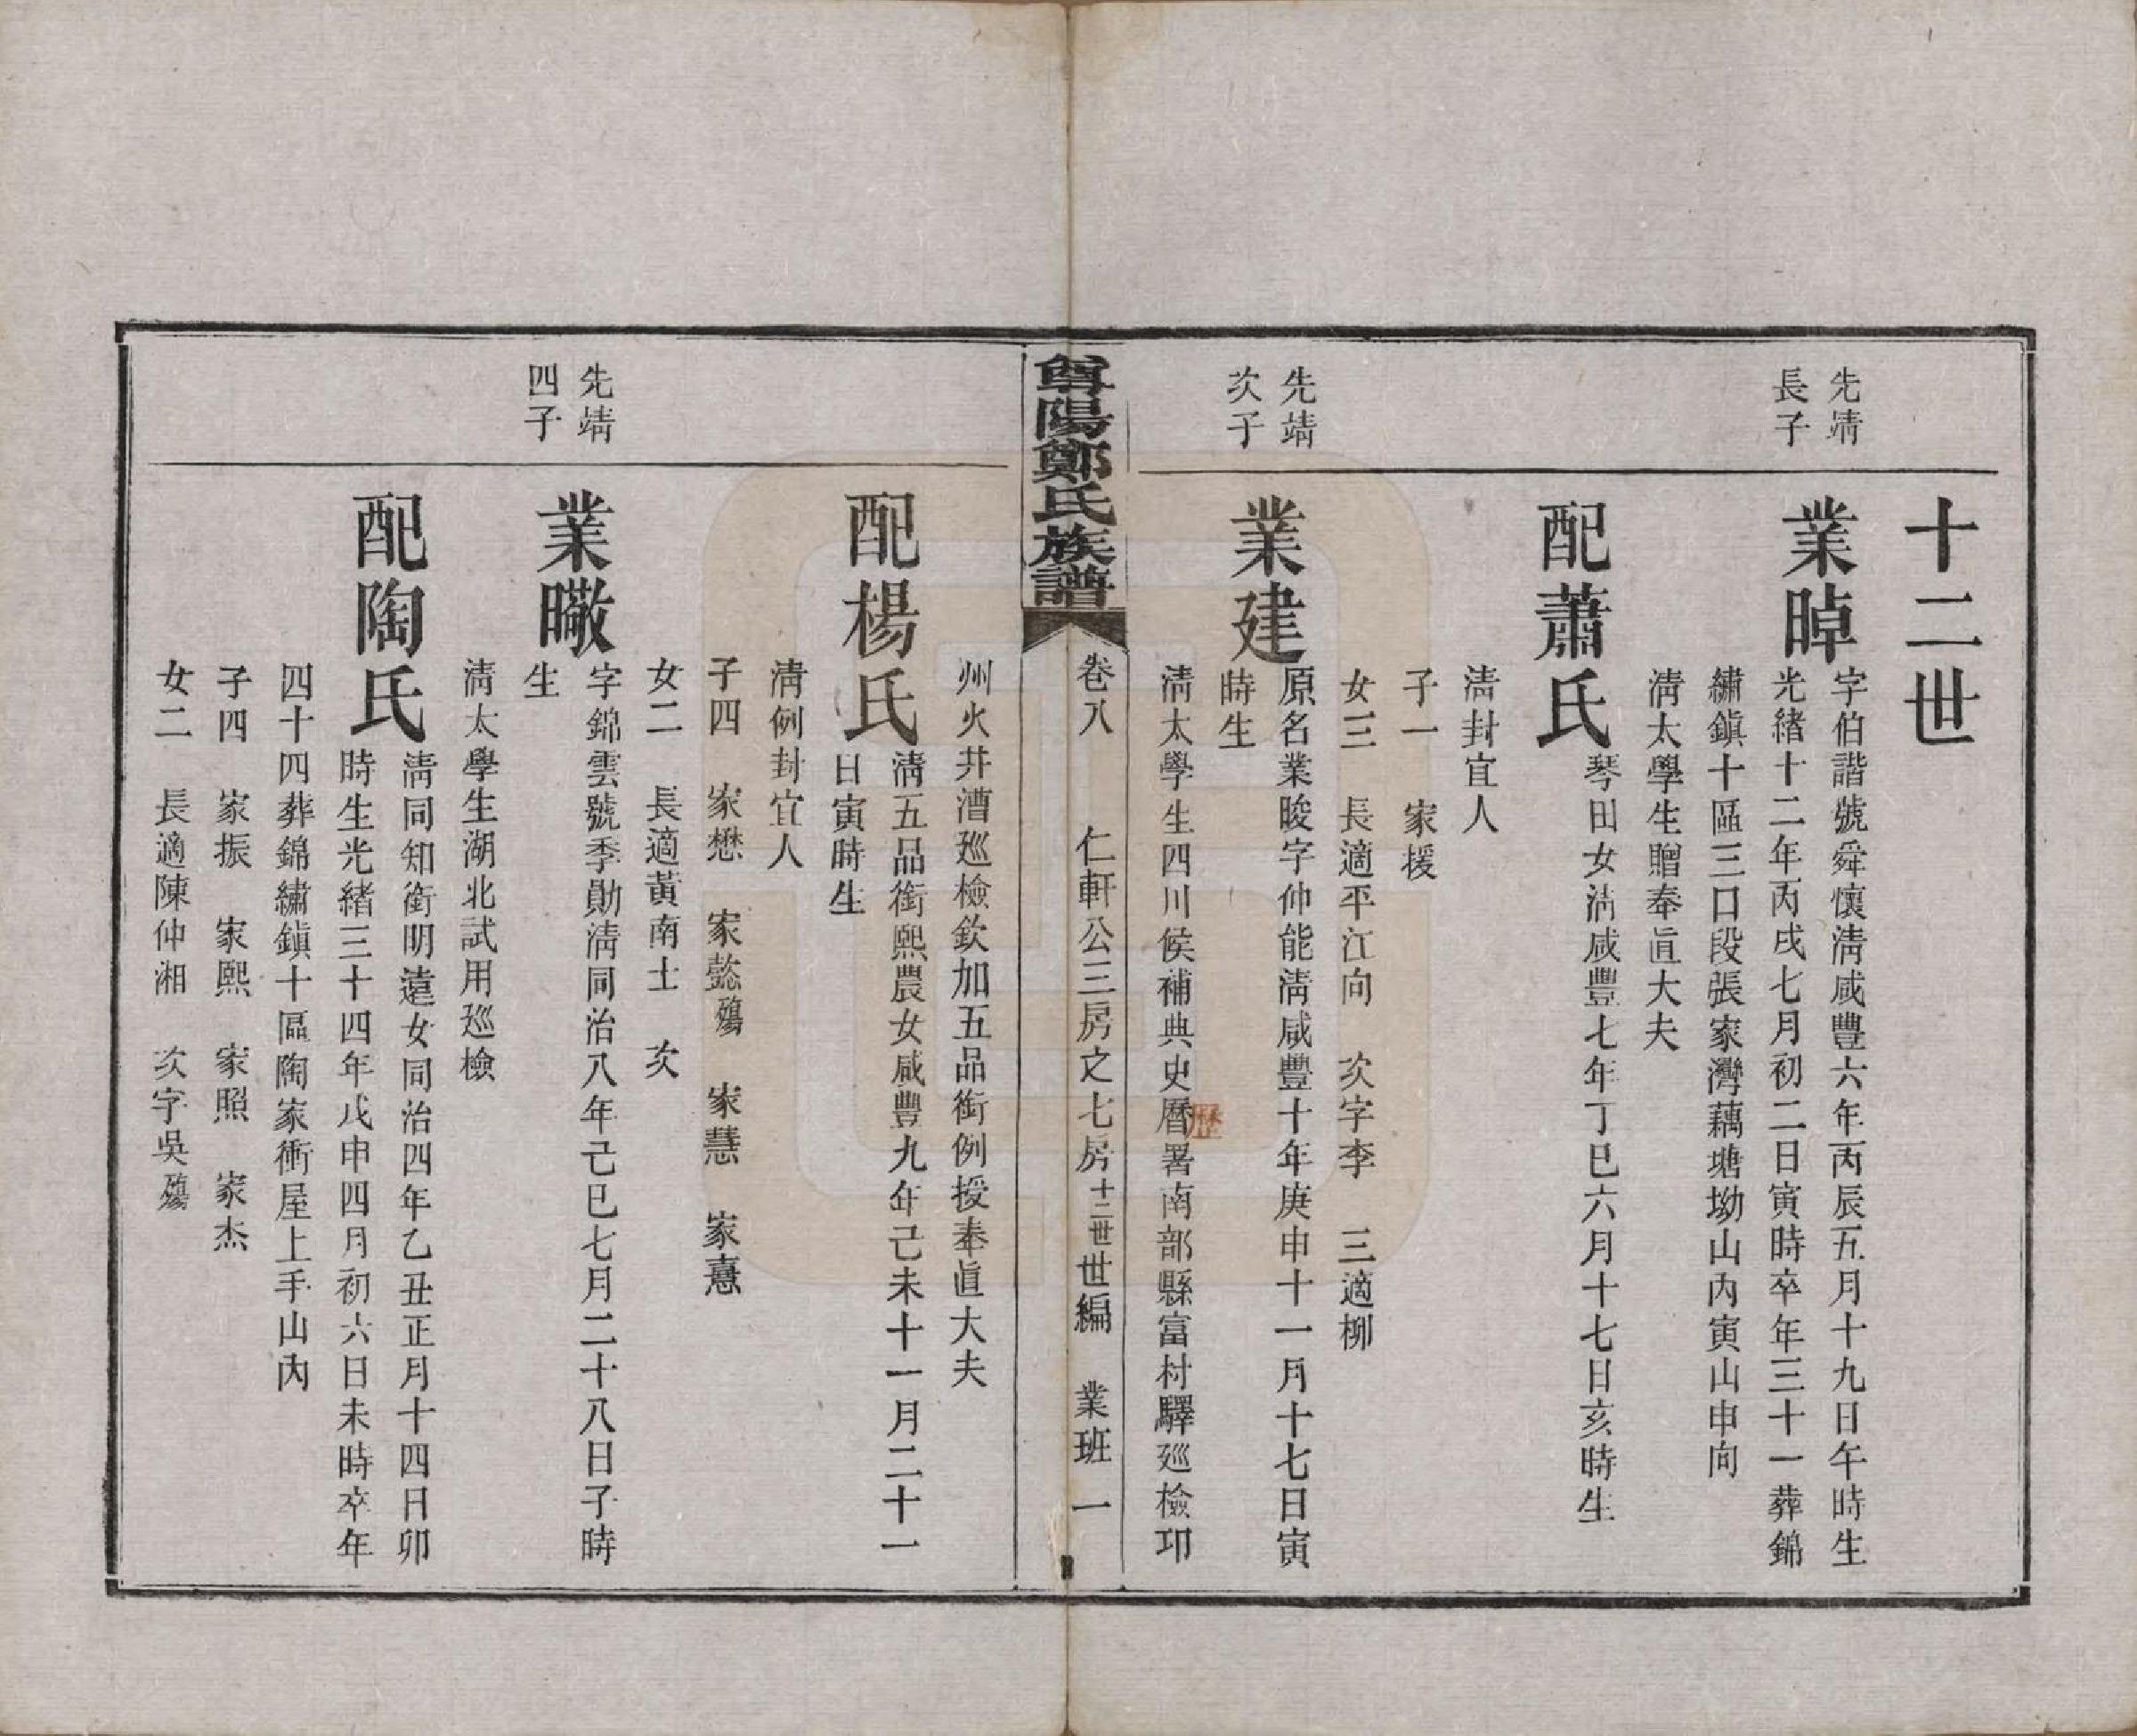 十二世
先靖
長子
業晫
字伯諧號舜懷淸咸豐六年丙辰五月十九日午時生
光緖十二年丙戌七月初二日寅時卒年三十一葬錦
繡鎭十區三口段張家灣藕塘坳山內寅山申向
淸太學生贈奉直大夫
配蕭氏
琴田女淸咸豐七年丁巳六月十七日亥時生
淸封宜人
子一　家援
女三　長適平江向　次字李　三適柳
先靖
次子
業建
原名業晙字仲能淸咸豐十年庚申十一月十七日寅
時生
淸太學生四川候補典史曆署南部縣富村驛巡檢邛
歷
尊陽鄭氏族譜
卷八　仁軒公三房之七房十二世世編　業班　一
州火井漕巡檢欽加五品銜例授奉直大夫
配楊氏
淸五品銜熙農女咸豐九年己未十一月二十一
日寅時生
淸例封宜人
子四　家懋　家懿殤　家慧　家憙
女二　長適黃南士　次
先靖
四子
業暾
字錦雲號季勛淸同治八年己巳七月二十八日子時
生
淸太學生湖北試用巡檢
配陶氏
淸同知銜明遠女同治四年乙丑正月十四日卯
時生光緖三十四年戊申四月初六日未時卒年
四十四葬錦繡鎭十區陶家衝屋上手山內
子四　家振　家熙　家照　家杰
女二　長適陳仲湘　次字吳殤